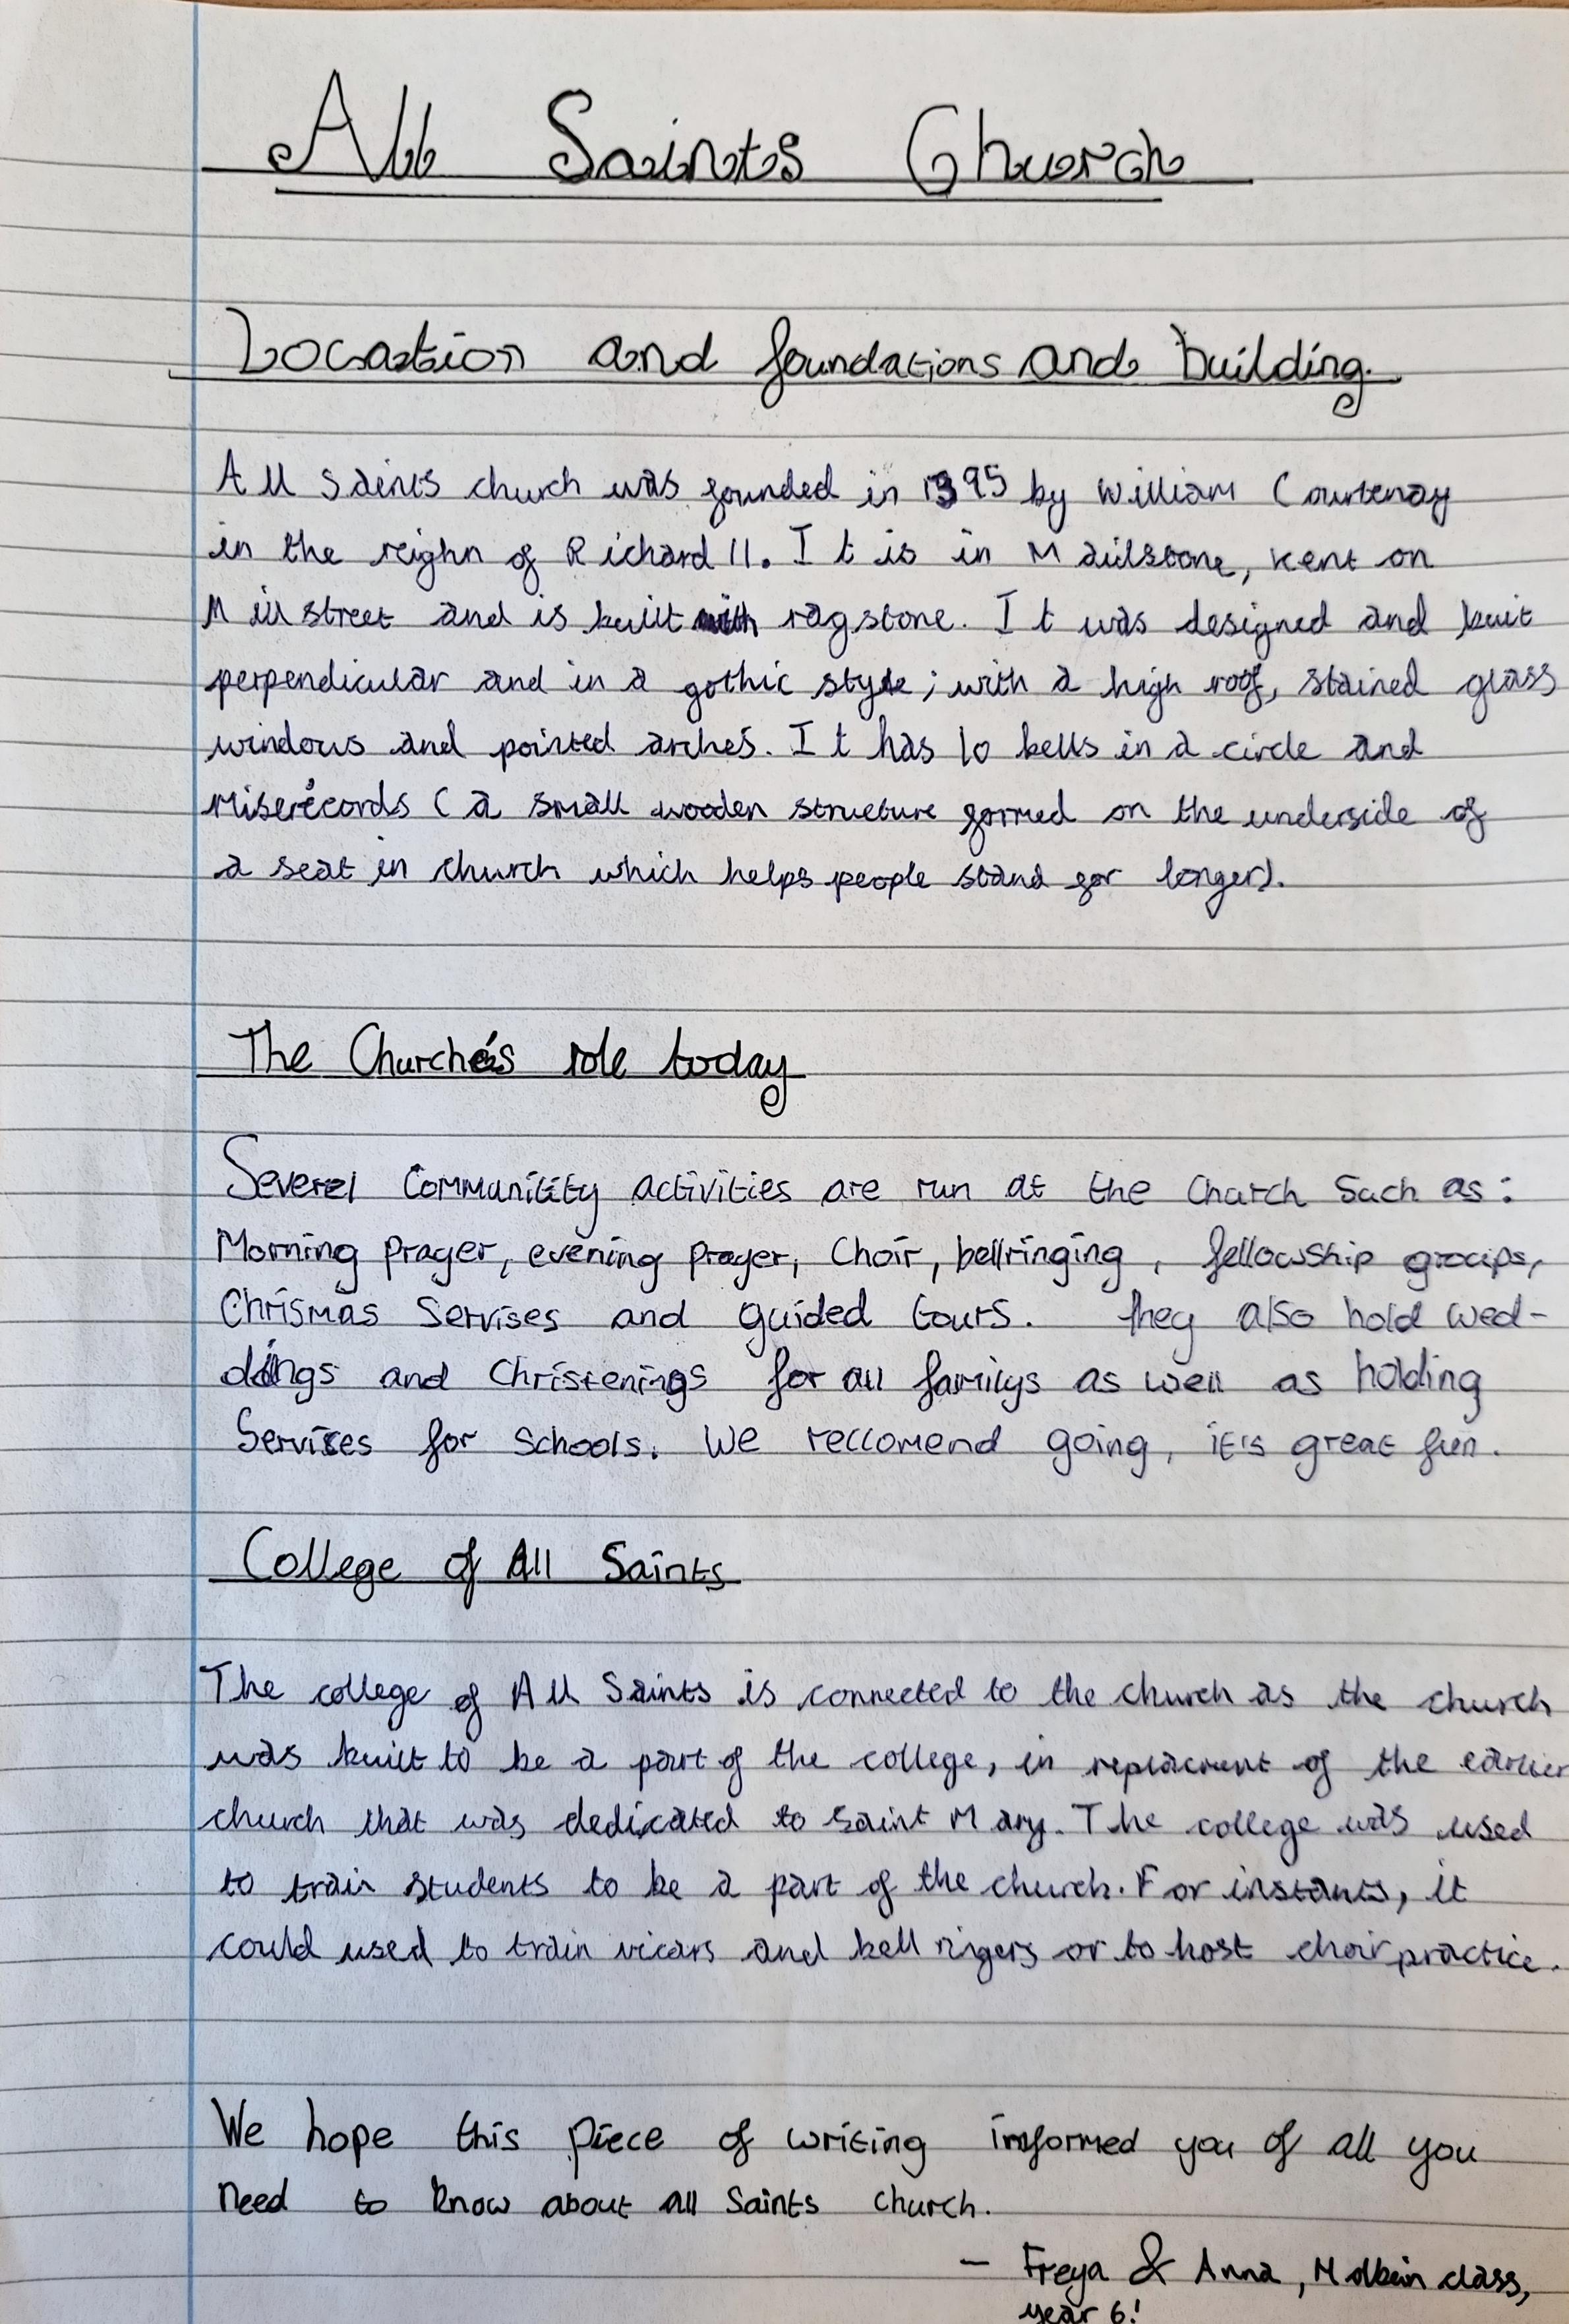 All Saints Church
Location and foundations and building.
All Saints church was founded in 1395 by William Courtenay
in the reighn of Richard II. It is in Maidstone, kent on
Mill street and is built with ragstone. It was designed and buit
perpendicular and in a gothic style; with a high roof, stained glass
windous and pointed arches. It has 10 bells in a circle and
misericords (a small wooden structure formed on the underside of
a seat in church which helps people stand for longer).
The Church's role today
Severel Community activities are run at the Church Such as:
Morning prayer, evening prayer, Choir, bellringing, fellowship groups,
Chrismas Servises and guided tours. They also hold wed-
dings and Christenings for all familys as well as holding
Services for Schools. We reccomend going, it's great fun.
College of All Saints
The college of All Saints is connected to the church as the church
was built to be a part of the college, in replacment of the earlier
church that was dedicated to Saint Mary. The college was used
to train students to be a part of the church. For instants, it
could used to train vicars and bell ringers or to host choir practice.
We hope this piece of writing informed you of all you
need to know about all Saints church.
- Freya & Anna, class,
year 6!